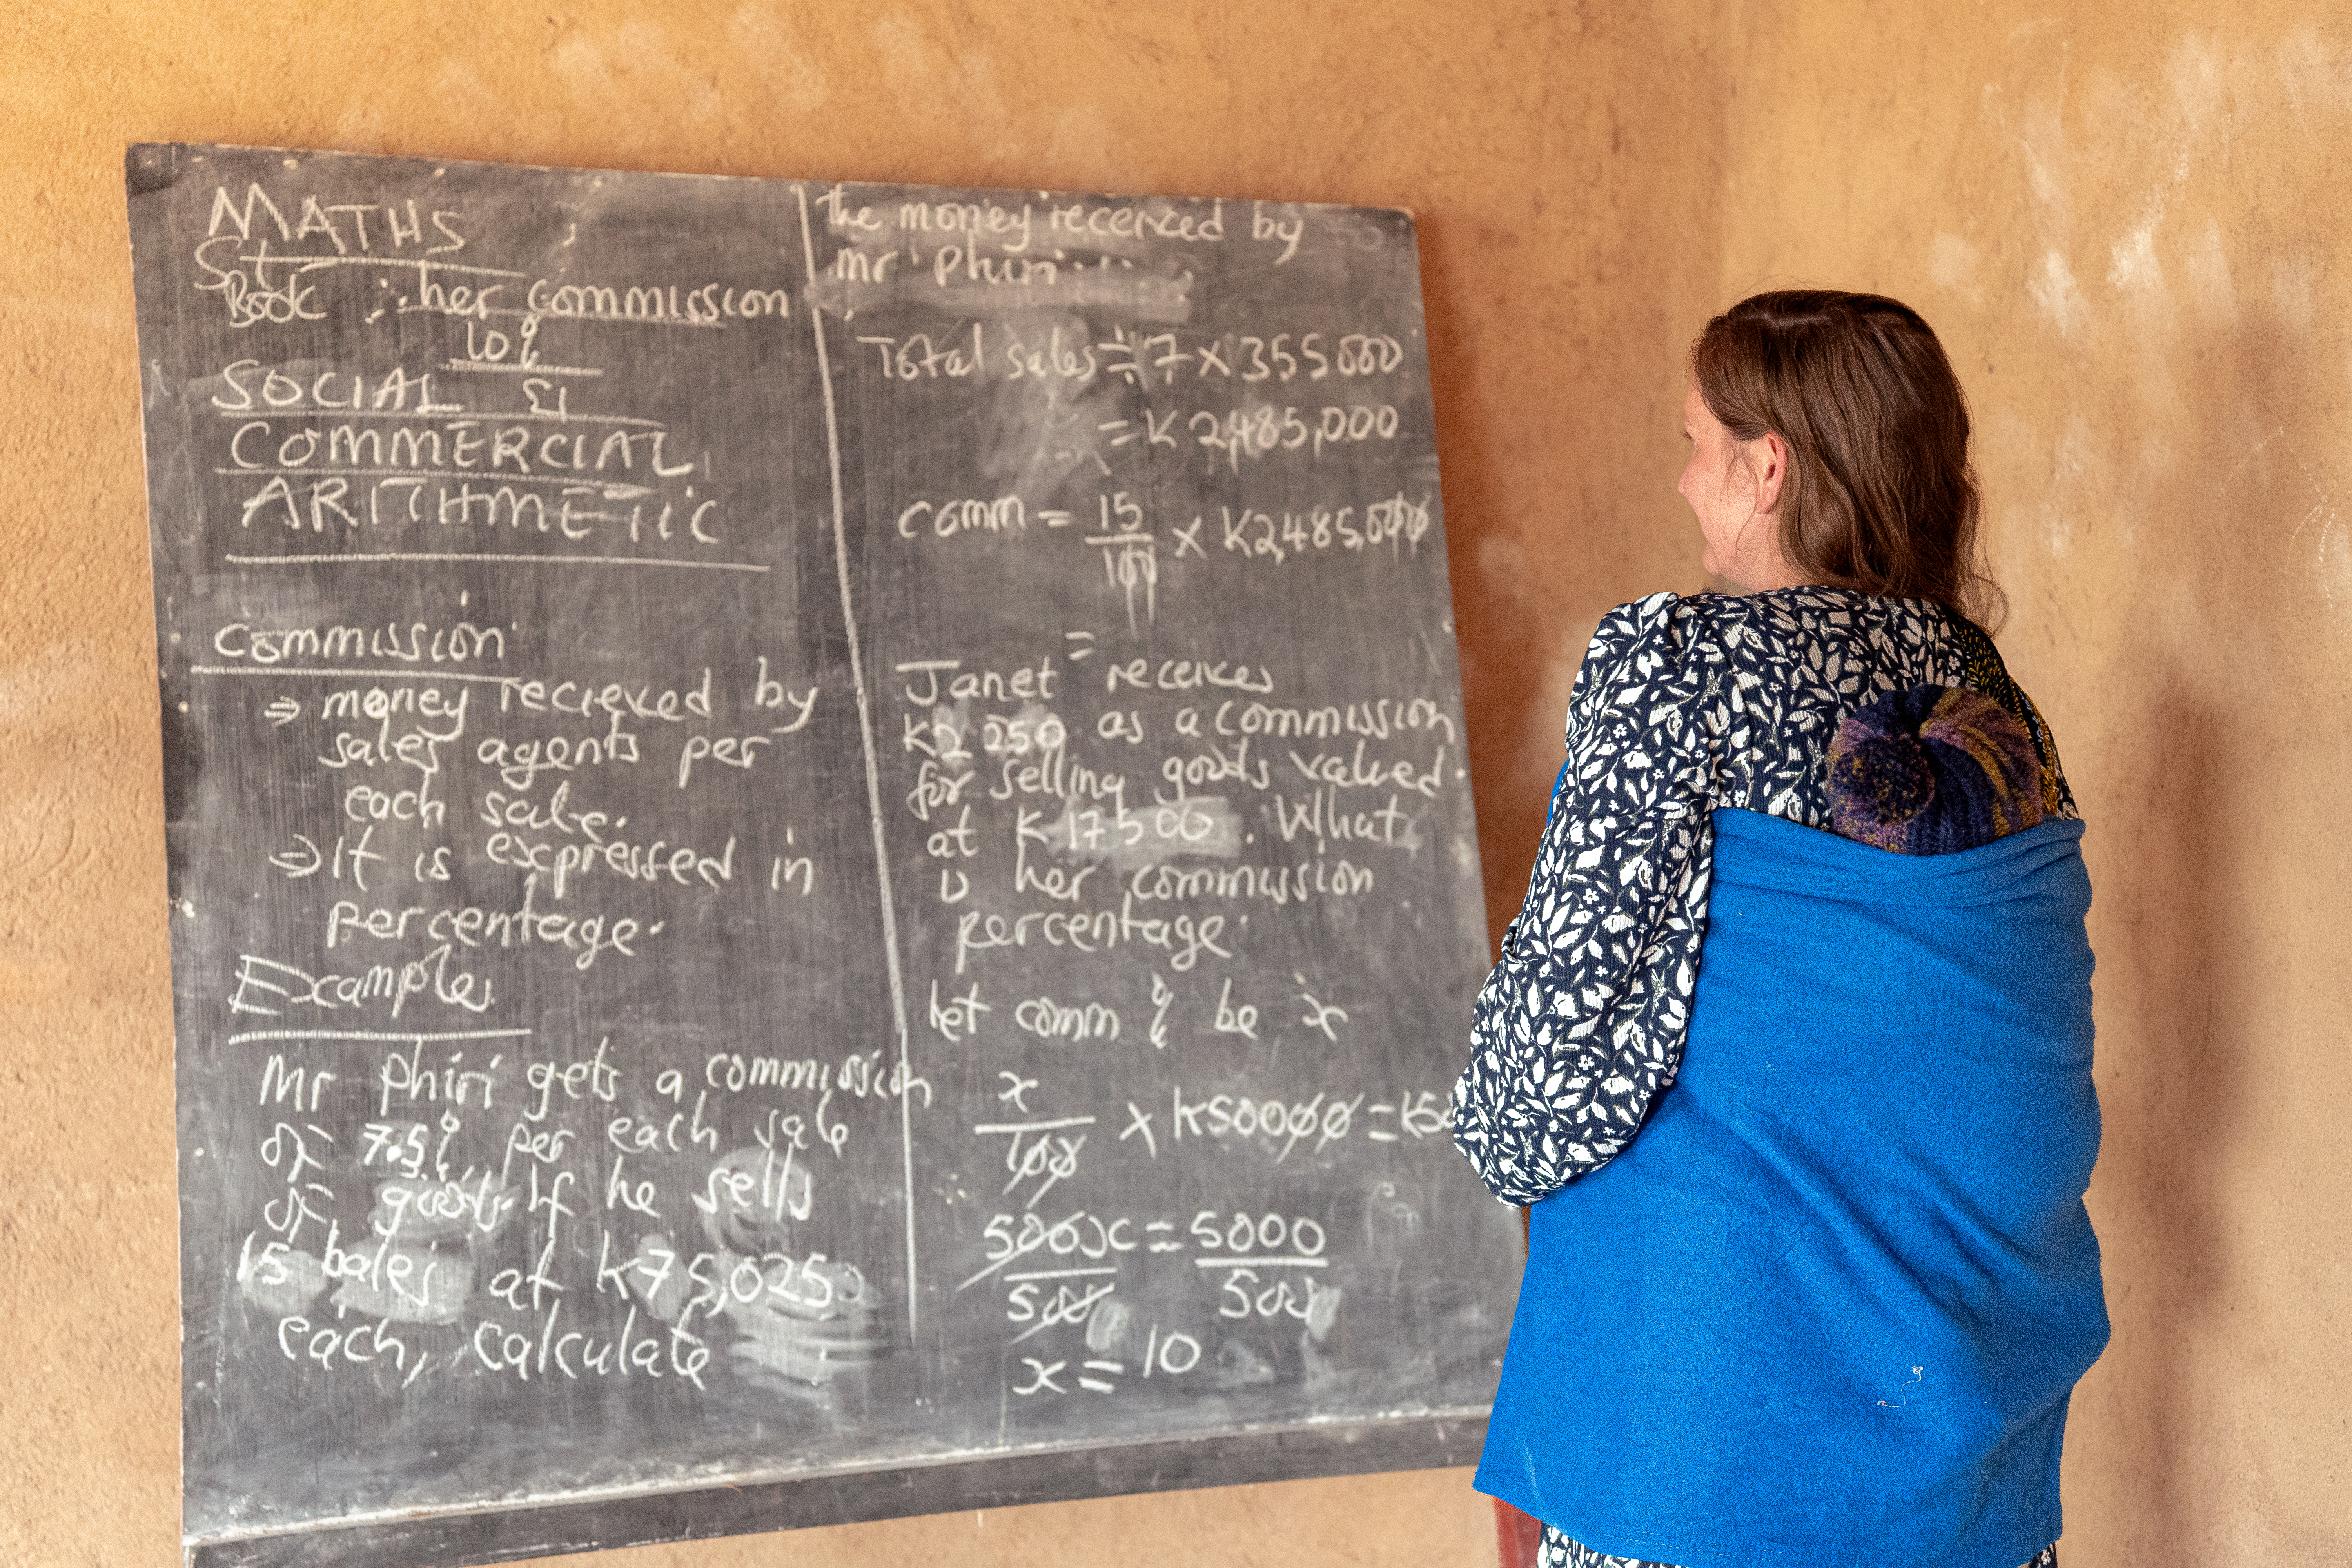 MATHS
St
Book ∴ her commission
10%
SOCIAL &
COMMERCIAL
ARITHMETIC
Commission
⇒ money recieved by
sales agents per
each sale.
⇒ It is expressed in
percentage.
Examples
Mr Phiri gets a commission
of 7.5% per each sale
of goods. If he sells
15 bales at K75,025
each, calculate
the money received by
mr Phiri...
Total sales = 7 x 355000
= K2,485,000
comm = 15/100 x K2,485,000
=
Janet receives
K2 250 as a commission
for selling goods valued
at K17500. What
is her commission
percentage.
let comm % be x
x/100 x K50000 = K50
500x/500 = 5000/500
x = 10